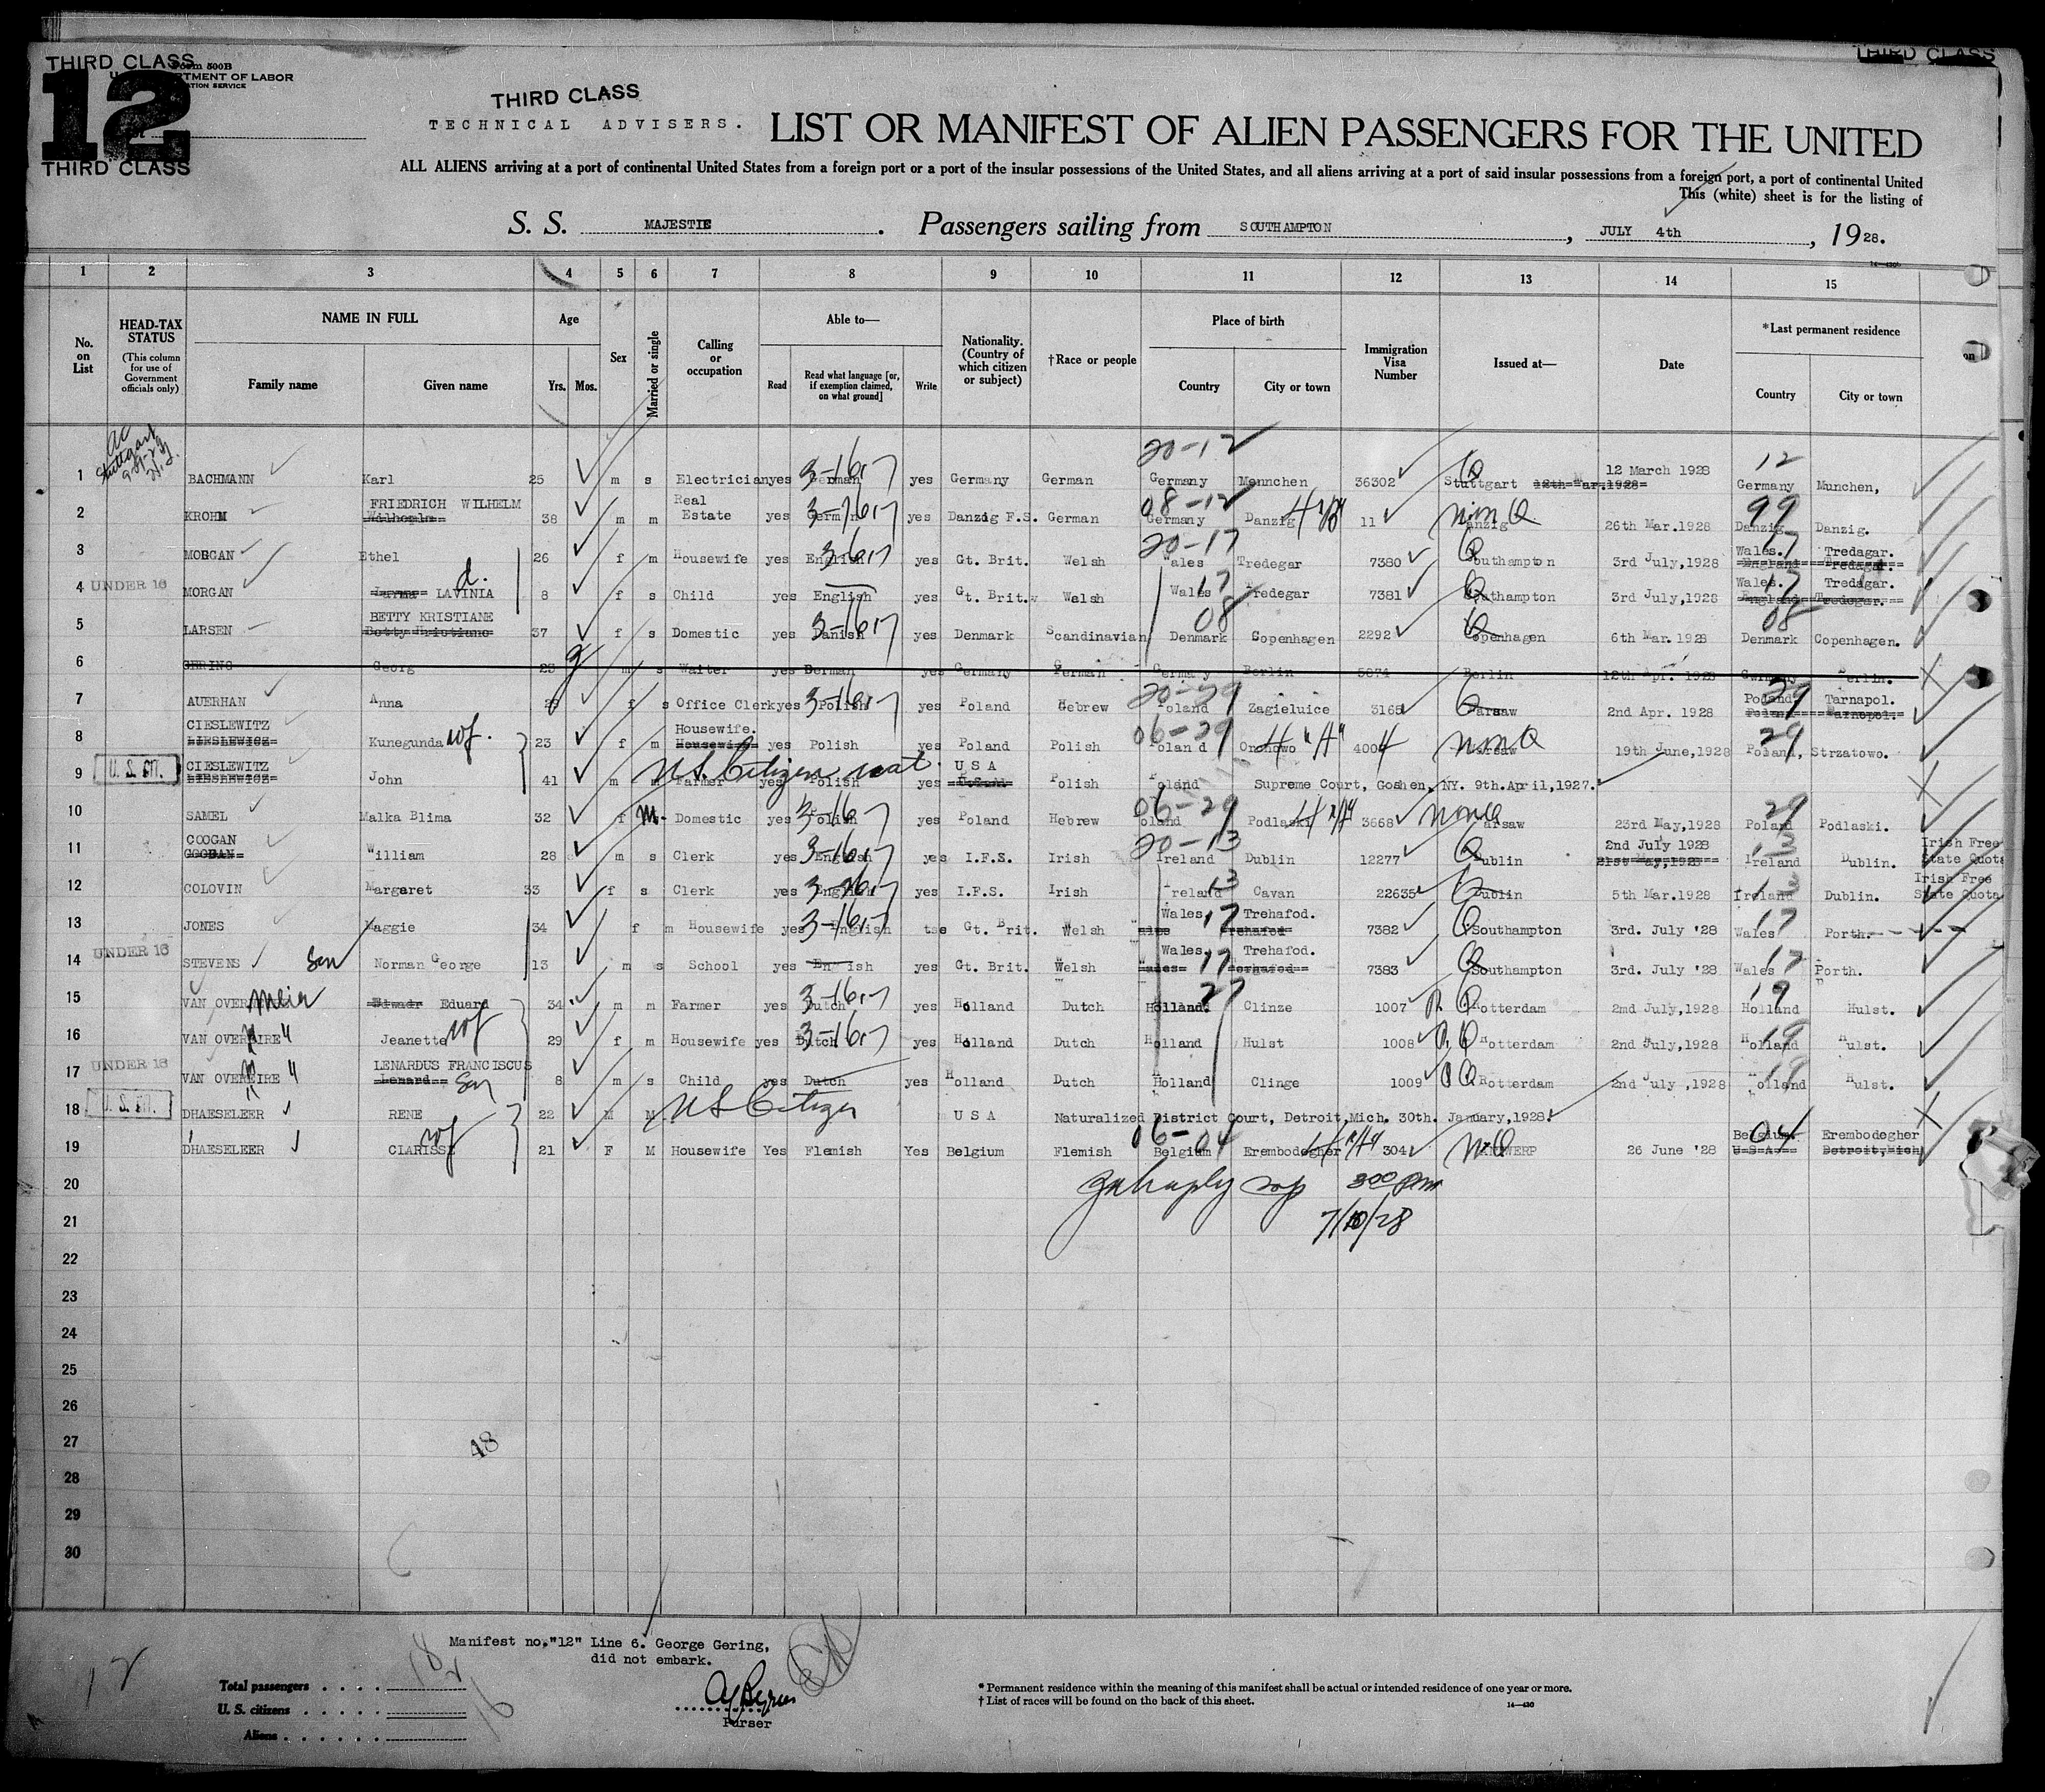 THIRD CLASS
THIRD CLASS
Form 500B
DEPARTMENT OF LABOR
12
THIRD CLASS
THIRD CLASS
TECHNICAL ADVISERS.
LIST OR MANIFEST OF ALIEN PASSENGERS FOR THE UNITED
ALL ALIENS arriving at a port of continental United States from a foreign port or a port of the insular possessions of the United States, and all aliens arriving at a port of said insular possessions from a foreign port, a port of continental United
This (white) sheet is for the listing of
S. S. MAJESTIE. Passengers sailing from SOUTHAMPTON, JULY 4th, 1928.
1 2 3 4 5 6 7 8 9 10 11 12 13 14 15
No. on List
HEAD-TAX STATUS (This column for use of Government officials only)
NAME IN FULL Family name Given name
Age Yrs. Mos.
Sex
Married or single
Calling or occupation
Able to— Read Read what language [or, if exemption claimed, on what ground] Write
Nationality. (Country of which citizen or subject)
†Race or people
Place of birth Country City or town
Immigration Visa Number
Issued at—
Date
*Last permanent residence Country City or town
20-12
1 BACHMANN Karl 25 m s Electrician yes German 3-16-17 yes Germany German Germany Mennchen 36302 Stuttgart 12th Mar.1928 12 March 1928 12 Germany Munchen,
2 KROHM FRIEDRICH WILHELM Wilhelm 38 m m Real Estate yes German yes Danzig F.S. German 08-12 Germany Danzig 11 Danzig 26th Mar.1928 99 Danzig Danzig.
3 MORGAN Ethel 26 f m Housewife yes English yes Gt. Brit. Welsh 20-17 Wales Tredegar 7380 Southampton 3rd July,1928 Wales. 17 Tredagar. England Tredagar.
UNDER 16
4 MORGAN LAVINIA d. 8 f s Child yes English yes Gt. Brit. Welsh Wales 17 Tredegar 7381 Southampton 3rd July,1928 Wales. 17 Tredagar. England Tredegar.
5 LARSEN BETTY KRISTIANE Betty Kristiane 37 f s Domestic yes Danish yes Denmark Scandinavian 08 Denmark Copenhagen 2292 Copenhagen 6th Mar. 1928 08 Denmark Copenhagen.
6 GERING Georg m s Waiter yes German yes Germany German Germany Berlin 5874 Berlin 12th Apr. 1928 Germany Berlin.
7 AUERHAN Anna f s Office Clerk yes Polish yes Poland Hebrew 20-29 Poland Zagieluice 3165 Warsaw 2nd Apr. 1928 Poland 29 Tarnapol. Poland Tarnopol.
8 CIESLEWITZ Kunegunda wf. 23 f m Housewife. Housewife yes Polish yes Poland Polish 06-29 Poland 4004 Warsaw 19th June,1928 29 Poland, Strzatowo.
U. S. CIT.
9 CIESLEWITZ John 41 m m Farmer yes Polish yes USA Polish Poland Supreme Court, Goshen, NY. 9th.April,1927.
US Citizen nat.
10 SAMEL Malka Blima 32 f m. Domestic yes Polish yes Poland Hebrew 06-29 Poland Podlaski 3668 Warsaw 23rd May,1928 29 Poland Podlaski.
11 COOGAN William 28 m s Clerk yes English yes I.F.S. Irish 20-13 Ireland Dublin 12277 Dublin 2nd July 1928 21st May,1928 13 Ireland Dublin. Irish Free State Quota
12 COLOVIN Margaret 33 f s Clerk yes English yes I.F.S. Irish Ireland 13 Cavan 22635 Dublin 5th Mar.1928 13 Ireland Dublin. Irish Free State Quota
13 JONES Maggie 34 f m Housewife yes English Gt. Brit. Welsh Wales, 17 Trehafod. Wales Trehafod 7382 Southampton 3rd. July '28 17 Wales Porth.
UNDER 16
14 STEVENS son Norman George 13 m s School yes English yes Gt. Brit. Welsh Wales, 17 Trehafod. Wales 7383 Southampton 3rd. July '28 Wales 17 Porth.
15 VAN OVERMEIR Eduard 34 m m Farmer yes Dutch yes Holland Dutch 27 Holland. Clinze 1007 Rotterdam 2md July,1928 19 Holland Hulst.
16 VAN OVEREIRE " Jeanette wf 29 f m Housewife yes Dutch yes Holland Dutch Holland Hulst 1008 Rotterdam 2nd July,1928 19 Holland Hulst.
UNDER 16
17 VAN OVEREIRE " LENARDUS FRANCISCUS Lenard son 8 m s Child yes Dutch yes Holland Dutch Holland Clinge 1009 Rotterdam 2nd July ,1928 19 Holland Hulst.
U. S. CIT.
18 DHAESELEER RENE 22 M M US Citizen USA Naturalized District Court, Detroit,Mich. 30th. January,1928.
19 DHAESELEER CLARISSE wf 21 F M Housewife Yes Flemish Yes Belgium Flemish 06-04 Belgium Erembodegher 304 ANTWERP 26 June '28 Belgium. 04 Erembodegher USA Detroit,Mich
20 300 pm
21 7/10/28
22
23
24
25
26
27
48
28
29
30
Manifest no."12" Line 6. George Gering,
did not embark.
12
Total passengers 18
U. S. citizens 2
Aliens 16
Purser
* Permanent residence within the meaning of this manifest shall be actual or intended residence of one year or more.
† List of races will be found on the back of this sheet.
14—430